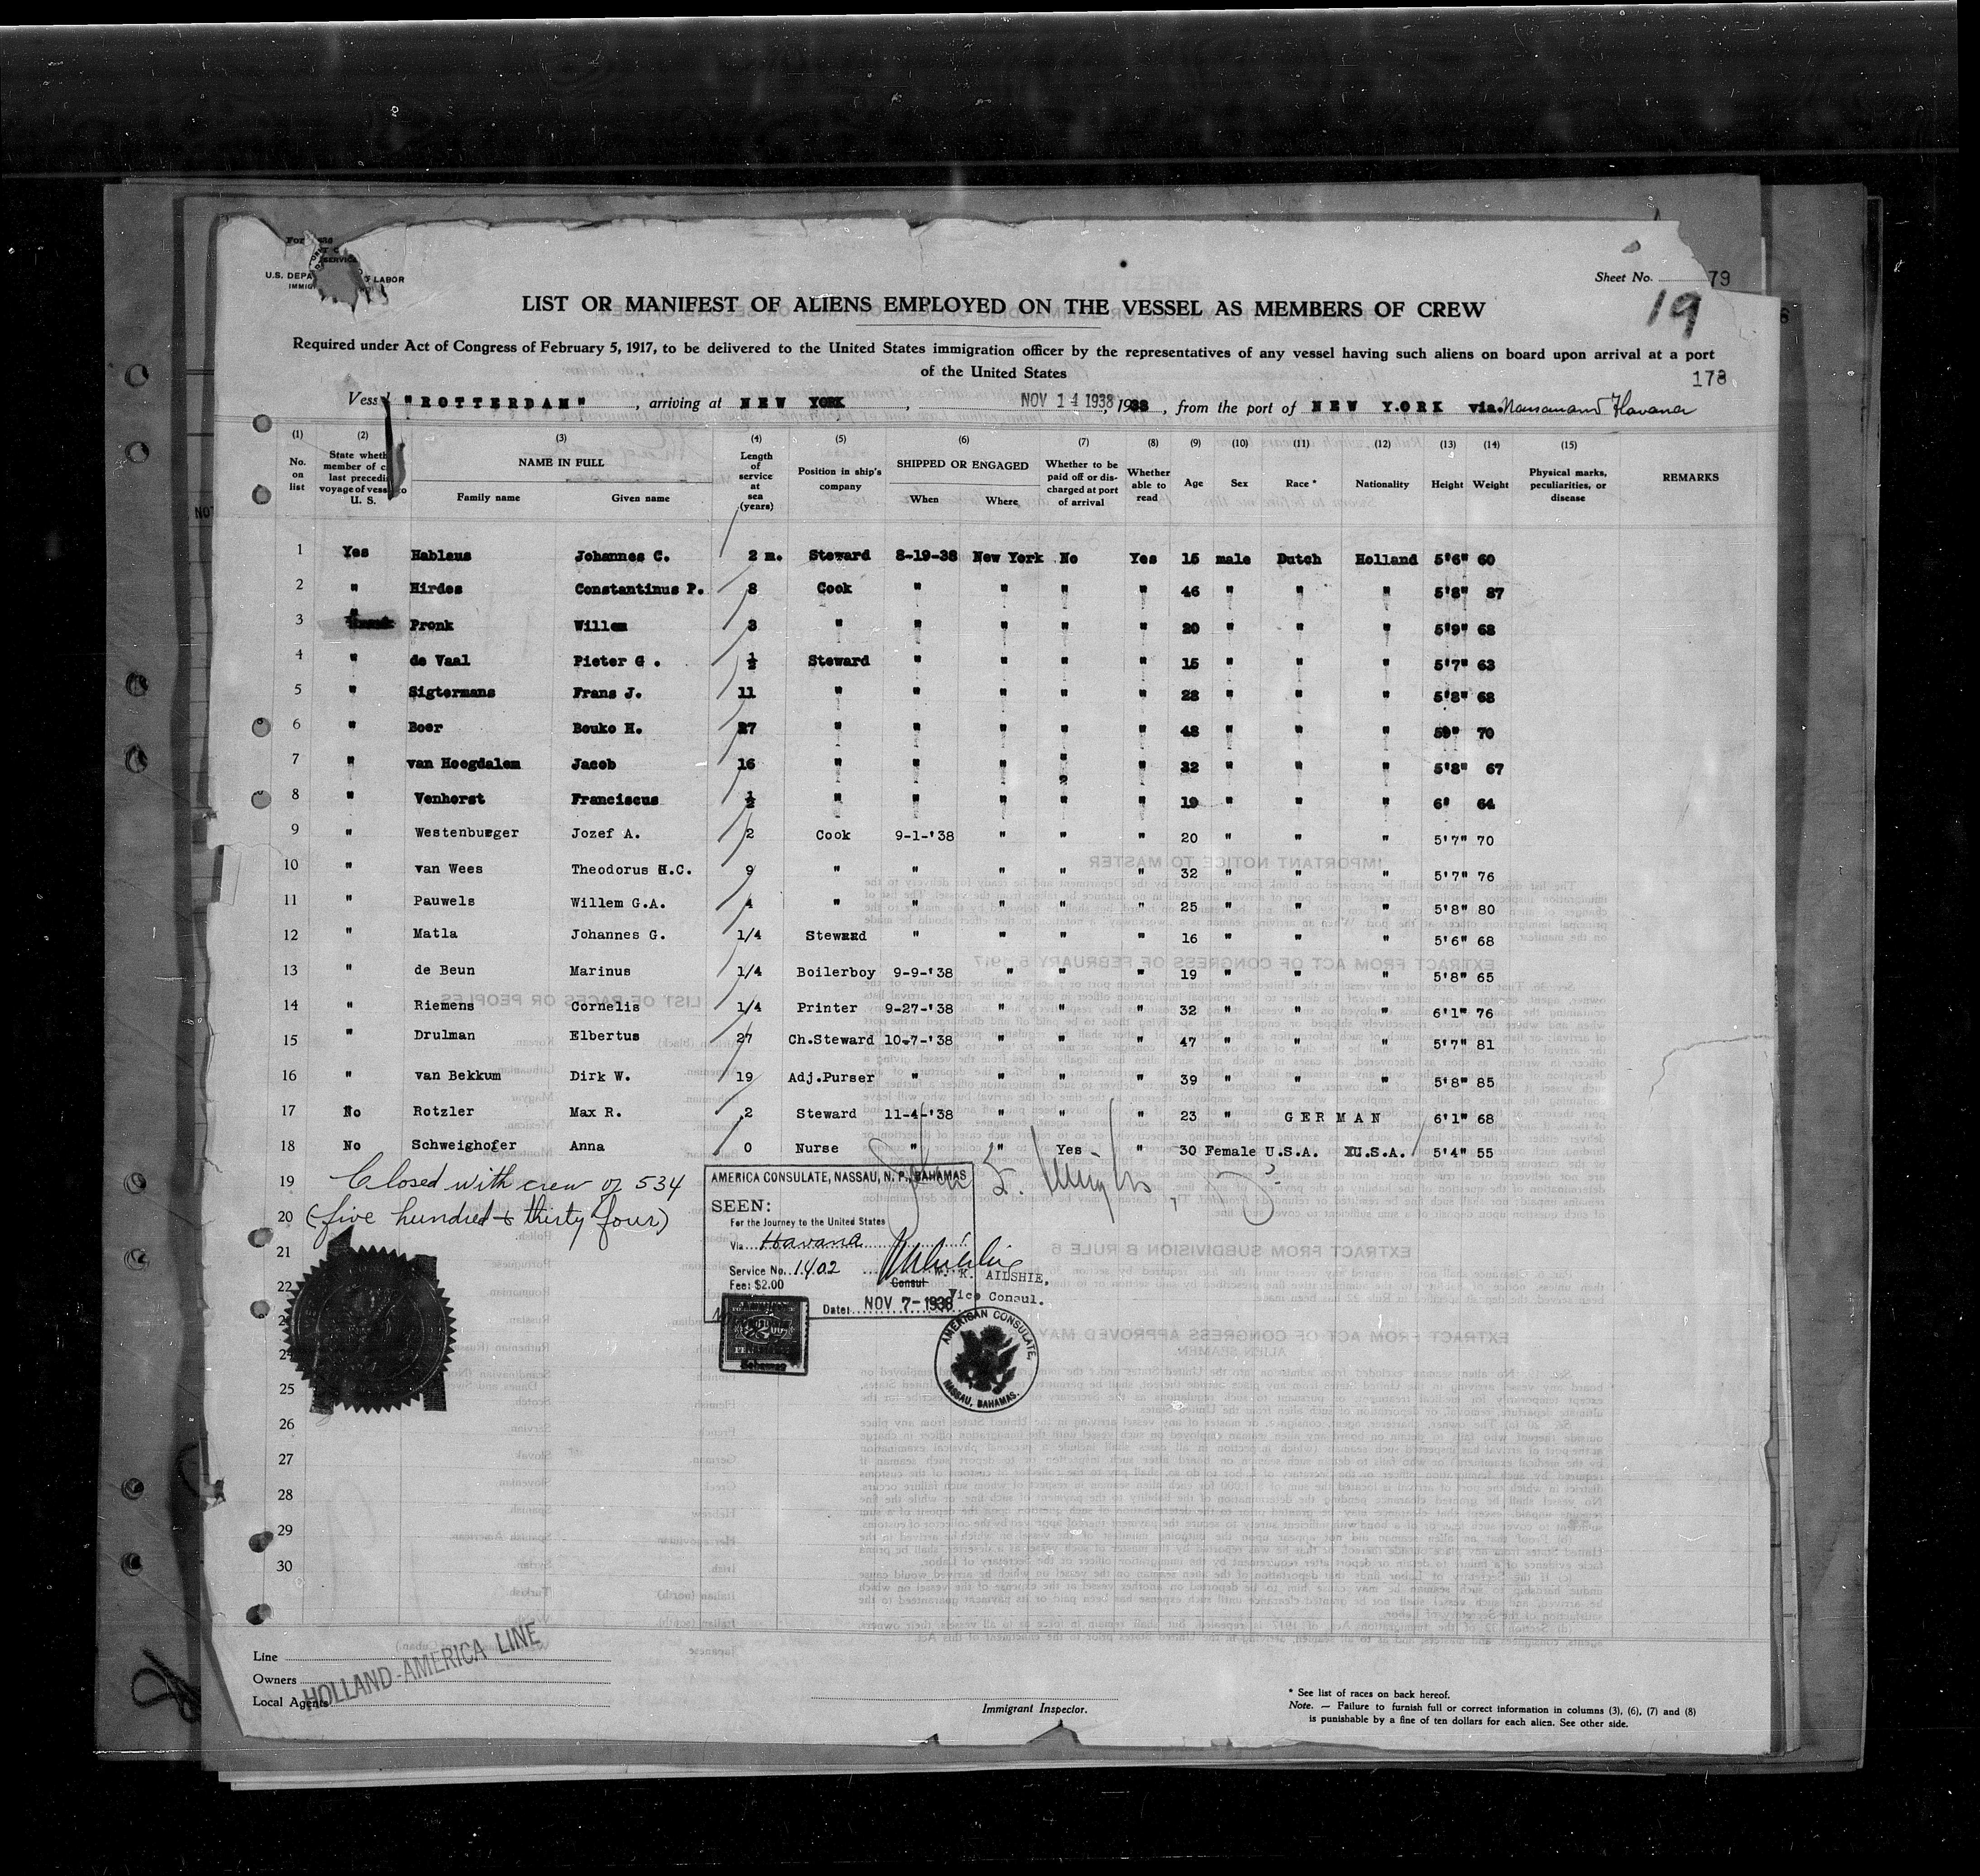 Sheet No. 79
19
U.S. DEPA LABOR
LIST OR MANIFEST OF ALIENS EMPLOYED ON THE VESSEL AS MEMBERS OF CREW
Required under Act of Congress of February 5, 1917, to be delivered to the United States immigration officer by the representatives of any vessel having such aliens on board upon arrival at a port
of the United States
178
"ROTTERDAM", arriving at NEW YORK, NOV 14 1938, 1938, from the port of NEW YORK via. Nassau and Havana
(1) (2) (3) (4) (5) (6) (7) (8) (9) (10) (11) (12) (13) (14) (15)
No. on list State wheth member of c last precedi voyage of vess to U. S. NAME IN FULL Family name Given name Length of service at sea (years) Position in ship's company SHIPPED OR ENGAGED When Where Whether to be paid off or discharged at port of arrival Whether able to read Age Sex Race * Nationality Height Weight Physical marks, peculiarities, or disease REMARKS
1 Yes Hablaus Johannes C. 2 m. Steward 8-19-38 New York No Yes 15 male Dutch Holland 5'6" 60
2 " Hirdes Constantinus P. 8 Cook " " " " 46 " " " 5'8" 87
3 " Pronk Willem 3 " " " " " 20 " " " 5'9" 68
4 " de Vaal Pieter G . ½ Steward " " " " 15 " " " 5'7" 63
5 " Sigtermans Frans J. 11 " " " " " 28 " " " 5'8" 68
6 " Boer Bouko H. 27 " " " " " 48 " " " 59" 70
7 " van Hoogdalem Jacob 16 " " " " " 32 " " " 5'8" 67
8 " Venhorst Franciscus ½ " " " " " 19 " " " 6' 64
9 " Westenburger Jozef A. 2 Cook 9-1-'38 " " " 20 " " " 5'7" 70
10 " van Wees Theodorus H.C. 9 " " " " " 32 " " " 5'7" 76
11 " Pauwels Willem G.A. 4 " " " " " 25 " " " 5'8" 80
12 " Matla Johannes G. 1/4 Steward " " " " 16 " " " 5'6" 68
13 " de Beun Marinus 1/4 Boilerboy 9-9-'38 " " " 19 " " " 5'8" 65
14 " Riemens Cornelis 1/4 Printer 9-27-'38 " " " 32 " " " 6'1" 76
15 " Drulman Elbertus 27 Ch.Steward 10-7-'38 " " " 47 " " " 5'7" 81
16 " van Bekkum Dirk W. 19 Adj.Purser " " " " 39 " " " 5'8" 85
17 No Rotzler Max R. 2 Steward 11-4-'38 " " " 23 " GERMAN 6'1" 68
18 No Schweighofer Anna 0 Nurse " " Yes " 30 Female U.S.A. U.S.A. 5'4" 55
19 Closed with crew of 534
20 (five hundred & thirty four)
21
22
23
24
25
26
27
28
29
30
AMERICA CONSULATE, NASSAU, N. P., BAHAMAS
SEEN:
For the Journey to the United States
Via Havana
Service No. 1402
Fee: $2.00
Consul
W. K. AILSHIE,
Vice Consul.
Date: NOV 7-1938
AMERICAN CONSULATE,
NASSAU, BAHAMAS.
Line
Owners
Local Agents
HOLLAND-AMERICA LINE
Immigrant Inspector.
* See list of races on back hereof.
Note. — Failure to furnish full or correct information in columns (3), (6), (7) and (8)
is punishable by a fine of ten dollars for each alien. See other side.